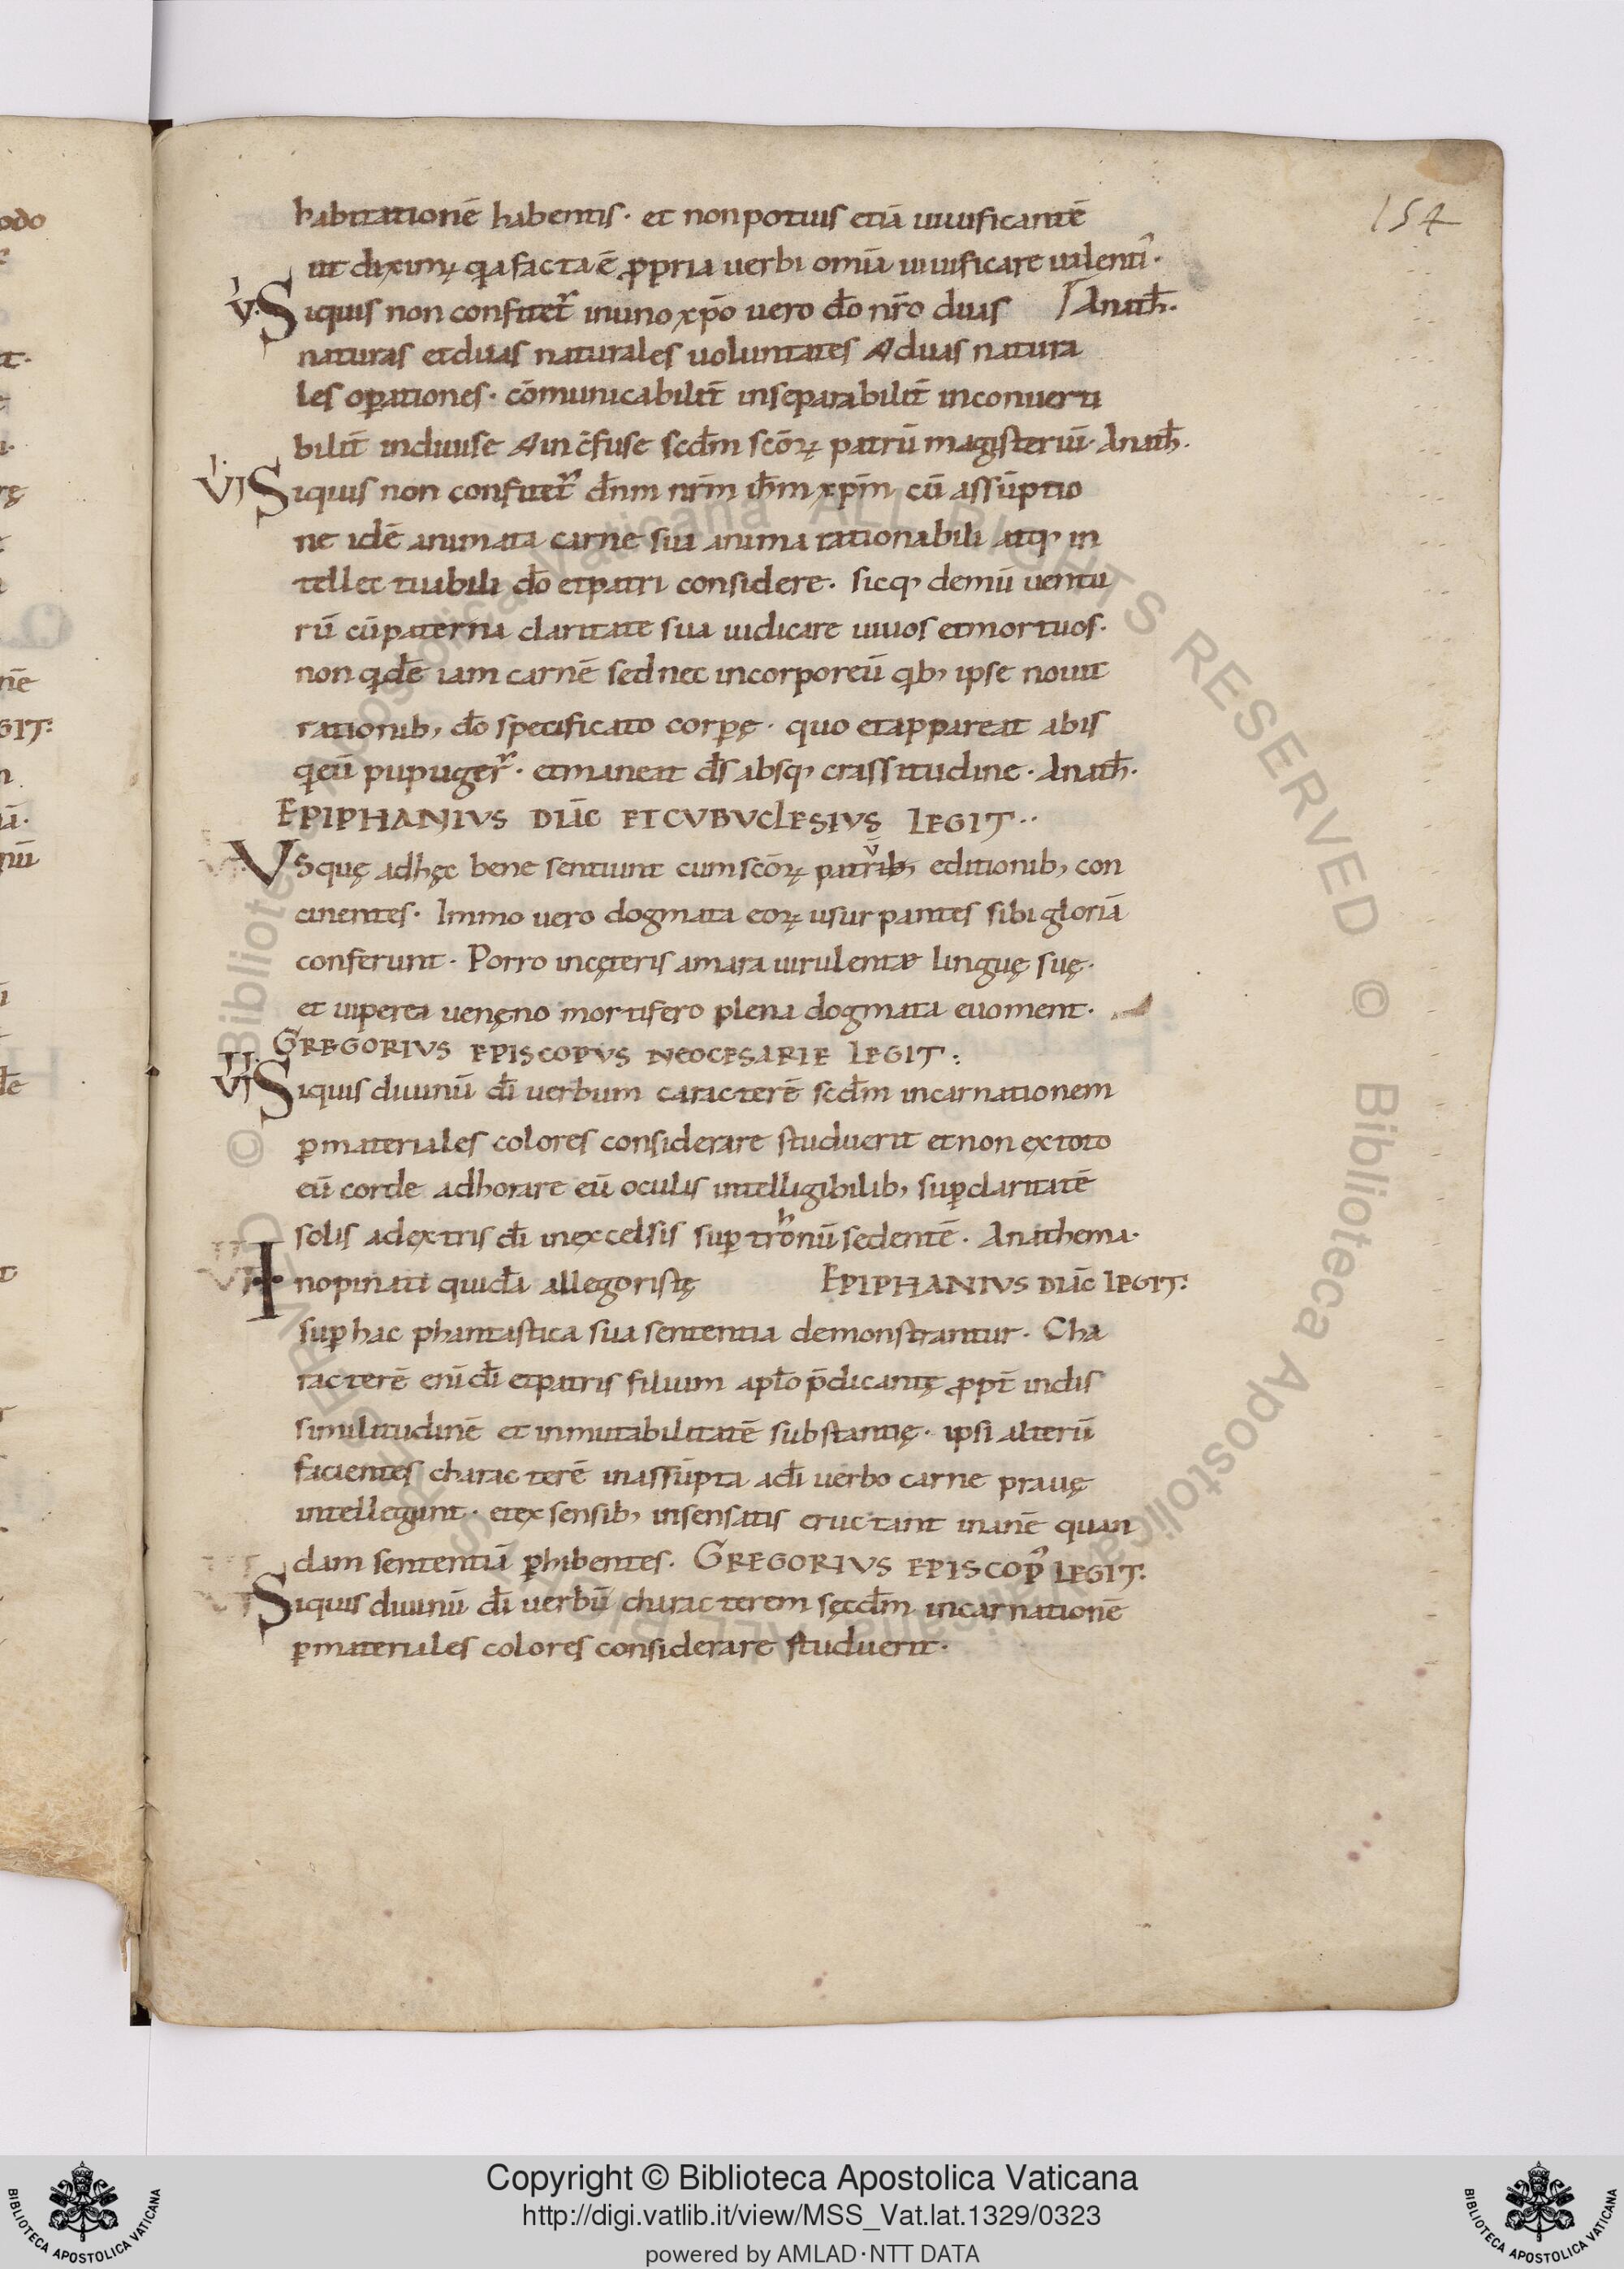 154
habitationē habentis · et non potius etiā uiuificantē
ut diximꝰ q̄a facta ē ꝓpria uerbi omīa uiuificare ualentiˀ ·
V· Siquis non confitet̄ in uno xp̄o uero dō nr̄o duas Anath̄ ·
naturas et duas naturales uoluntates & duas natura
les oꝑationes · cōmunicabilit̄ inseparabilit̄ inconuerti
bilit̄ indiuise & inc̄fuse scdm̄ scōꝝ patrū magisteriū · Anath̄ ·
VI Siquis non confitet̄ dn̄m nr̄m ih̄m xp̄m cū assūptio
ne idē animata carne sua anima rationabili atq; in
tellectuabili dō et patri considere · sicq; demū uentu
rū cū paterna claritate sua iudicare uiuos et mortuos ·
non qdē iam carnē sed nec incorporeū qb; ipse nouit
rationib; dō specificato corpę · quo et appareat abis
q eū pupuger̄ · et maneat ds̄ absq; crassitudine · Anath̄ ·
EPIPHANIVS DIĀC ET CVBVCLESIVS LEGIT ··
Vsquę ad hęc bene sentiunt cum scōꝝ patrib; editionib; con
cinentes · Immo uero dogmata eoꝝ usurpantes sibi gloriā
conferunt · Porro in cęteris amara uirulentæ linguę suę ·
et uiperea uenęno mortifero plena dogmata euoment ·
GREGORIVS EPISCOPVS NEOCESARIE LEGIT :
VII Siquis diuinū dī uerbum caracterē scdm̄ incarnationem
ꝑ materiales colores considerare studuerit et non ex toto
eū corde adhorare eū oculis intelligibilib; suꝑ claritatē
solis a dextris dī in excelsis suꝑ tʰronū sedentē · Anathema ·
Inopinati quidā allegoristę EPIPHANIVS DIĀC LEGIT :
suꝑ hac phantastica sua sententia demonstrantur · Cha
racterē enī dī et patris filium aplō p̄dicantę ꝓpt̄ indis
similitudinē et inmutabilitatē substantię · ipsi alterū
facientes characterē in assūpta a dī uerbo carne prauę
intellegunt · et ex sensib; insensatis eructant inanē quan
dam sententiā ꝑhibentes · GREGORIVS EPISCOPˀ LEGIT :
Siquis diuinū dī uerbū characterem sęcdm̄ incarnationē
ꝑ materiales colores considerare studuerit ·
Copyright © Biblioteca Apostolica Vaticana
http://digi.vatlib.it/view/MSS_Vat.lat.1329/0323
powered by AMLAD·NTT DATA
BIBLIOTECA APOSTOLICA VATICANA
BIBLIOTECA APOSTOLICA VATICANA